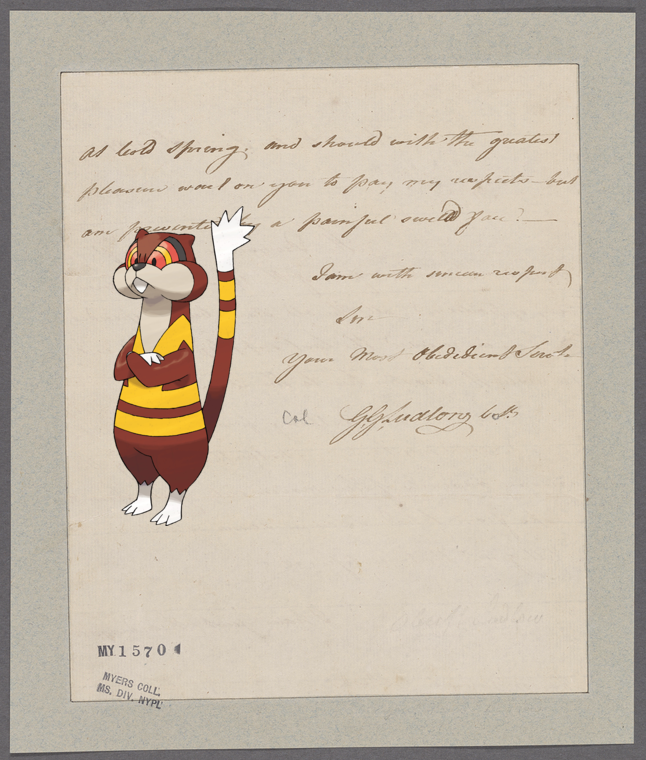 at Cold Spring, and should with the greatest
pleasure wait on you to pay my respects but
am a painful swelld
I am with sincere respect
Your Most Obdedient Servt
Col GG Ludlow
MY 1570
MYERS COLL.
MS. DIV. NYPL